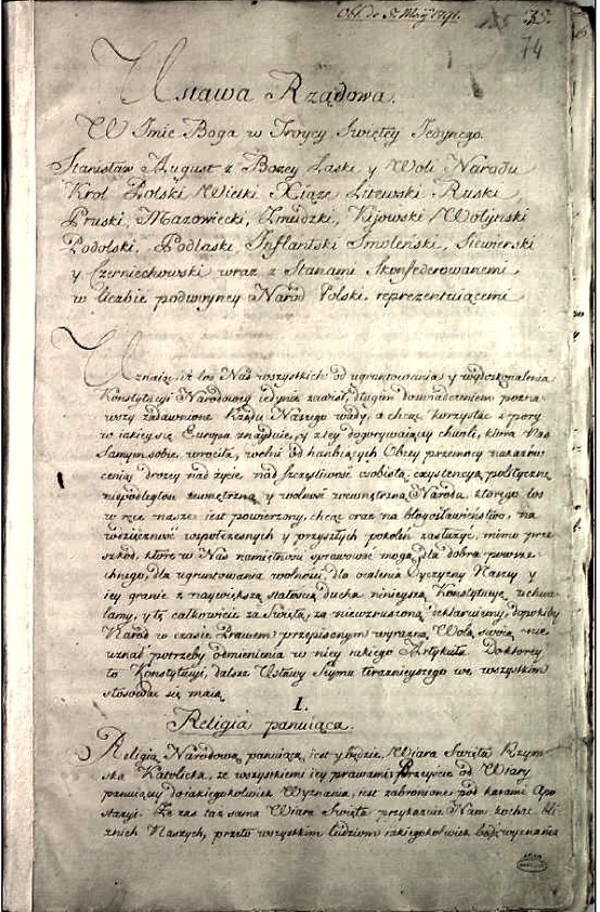 Obl. de 5. Maij 1791.
155 35.
74
Ustawa Rządowa.
W Imie Boga w Troycy Swiętey Jedynego.
Stanisław August z Bozey Łaski y Woli Narodu
Krol Polski Wielki Xiąze Litewski Ruski
Pruski, Mazowiecki, Zmudzki, Kijowski Wołyński
Podolski, Podlaski Inflantski Smoleński, Siewierski
y Czerniechowski wraz z Stanami Skonfederowanemi
w liczbie podwoyney Naród Polski reprezentuiącemi
Uznaiąc, iż los Nas wszystkich od ugruntowania y wydoskonalenia
Konstytucyi Narodowey iedynie zawisł, długim doswiadczeniem pozna
wszy zadawnione Rządu Naszego wady, a chcąc korzystać z pory
w iakiey się Europa znayduie, y z tey dogorywaiącey chwili, która Nas
Samym sobie wrociła, wolni od hańbiących Obcey przemocy nakazów
ceniąc drożey nad życie nad szczęśliwość osobistą, exystencyą polityczną
niepodległość zewnętrzną y wolność wewnętrzną Narodu, którego los
w ręce nasze iest powierzony, chcąc oraz na błogosławieństwo, na
wdzięczność wspołczesnych y przyszłych pokoleń zasłużyć, mimo prze
szkód, które w Nas namiętności sprawować mogą, dla dobra powsze
chnego, dla ugruntowania wolności, dla ocalenia Oyczyzny Naszey y
iey granic z naywiększą stałością ducha ninieyszą Konstytucyę uchwa
lamy, y tę całkowicie za Swiętą, za niewzruszoną deklaruiemy, dopokiby
Naród w czasie Prawem przepisanym wyrazną Wolą swoią nie
uznał potrzeby odmienienia w niey iakiego Artykułu. Do ktorey
to Konstytucyi, dalsze Ustawy Seymu teraznieyszego we wszystkim
stosować się maią
I.
Religia panuiąca.
Religią Narodową panuiącą, iest y będzie, Wiara Swięta Rzym
ska Katolicka, ze wszystkiemi iey prawami; Przeyście od Wiary
panuiącey do iakiegokolwiek Wyznania, iest zabronione pod karami Apo
stazyi. Ze zaś taż sama Wiara Swięta przykazuie Nam kochać bli
znich Naszych, przeto wszystkim ludziom iakiegokolwiek bądź wyznania